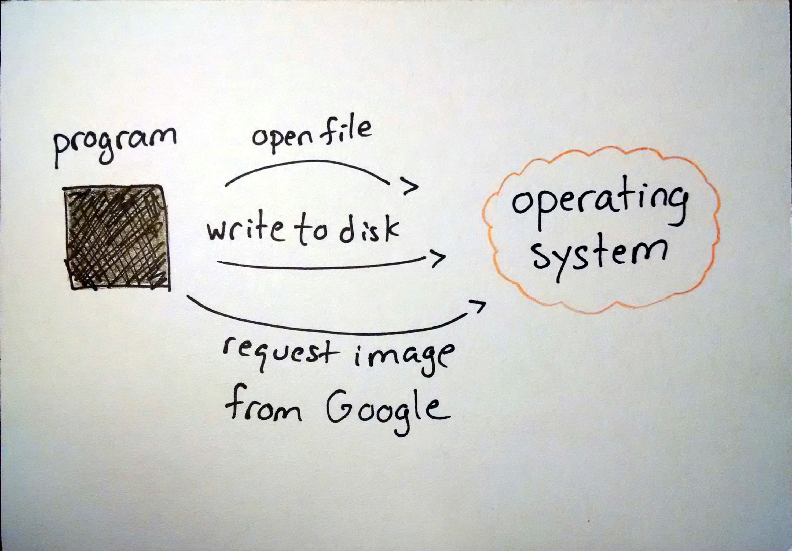 program
open file
write to disk
request image
from Google
operating
system